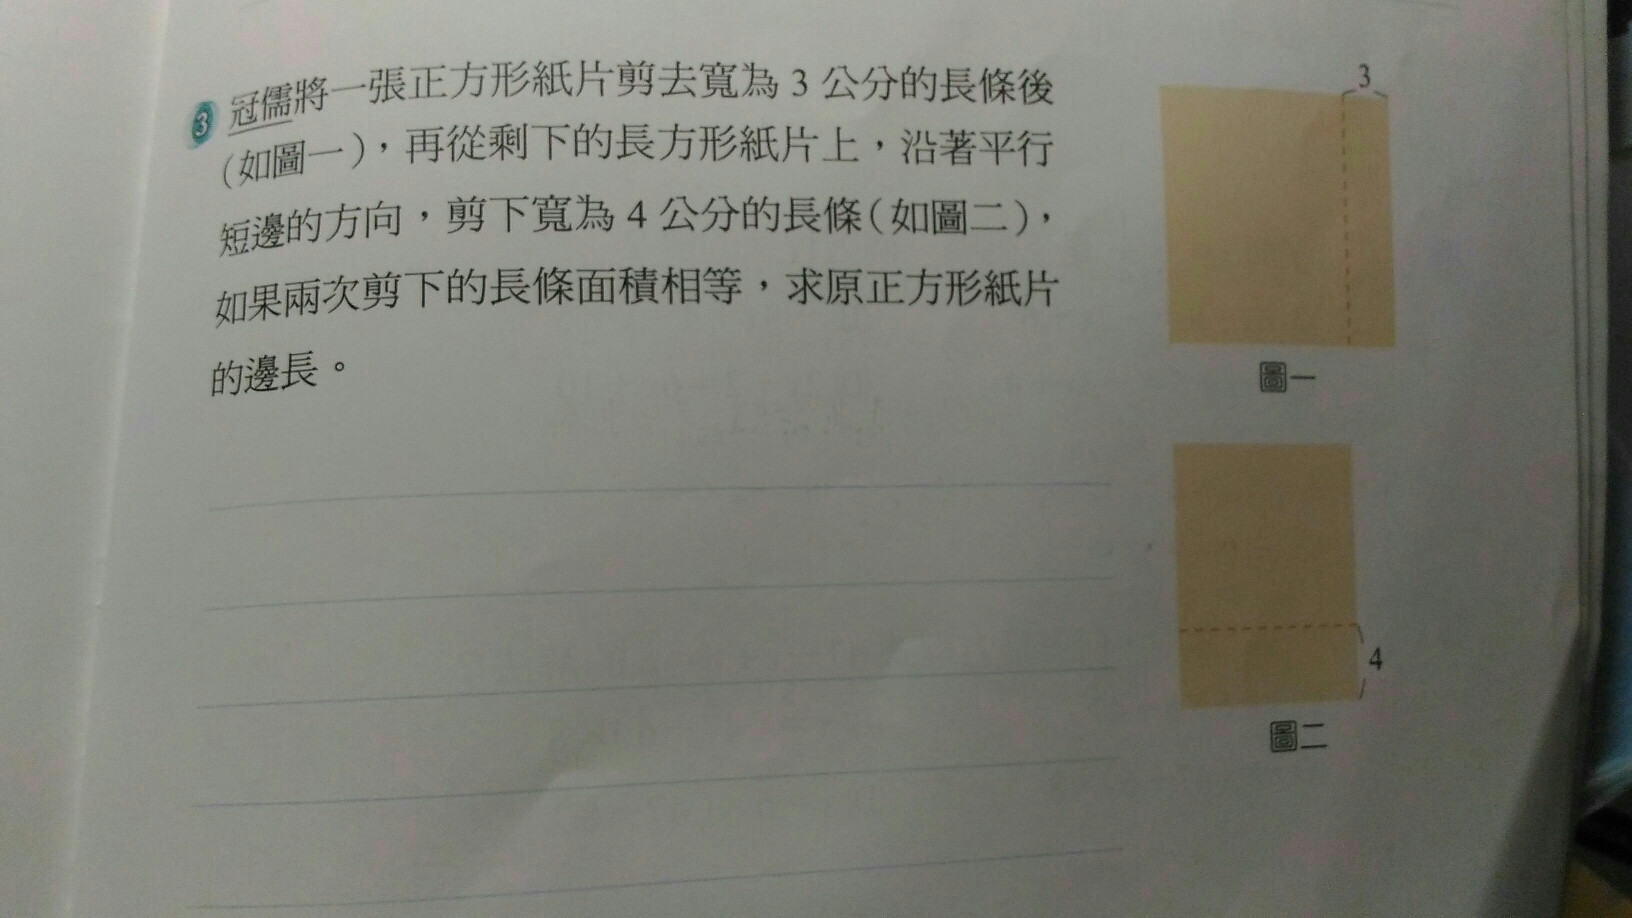 3 冠儒將一張正方形紙片剪去寬為 3 公分的長條後
(如圖一)，再從剩下的長方形紙片上，沿著平行
短邊的方向，剪下寬為 4 公分的長條(如圖二)，
如果兩次剪下的長條面積相等，求原正方形紙片
的邊長。
3
圖一
4
圖二